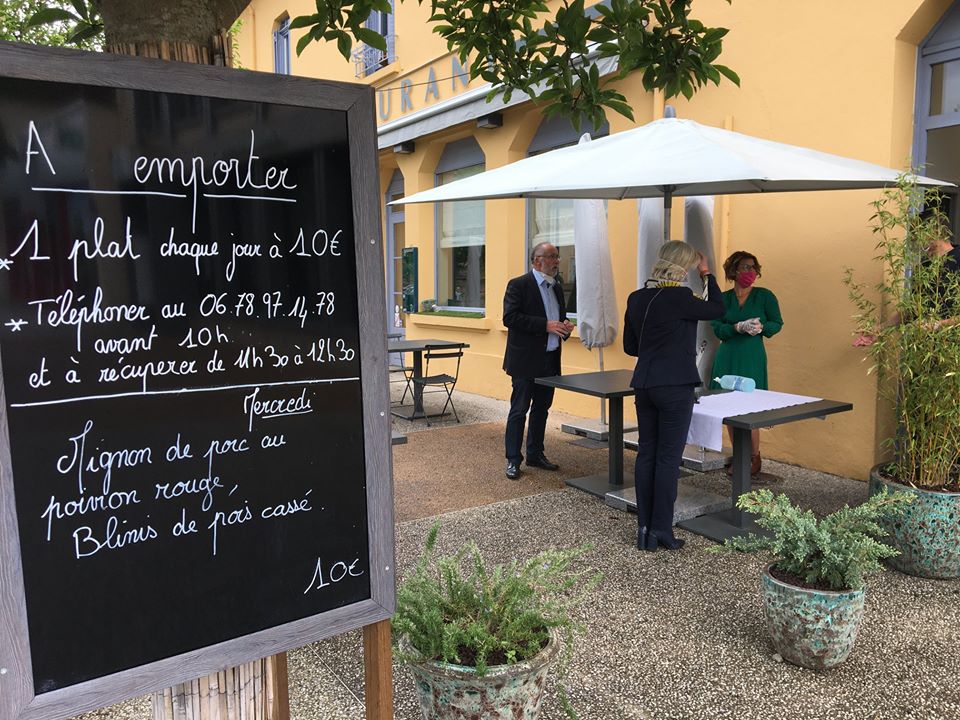 A emporter
* 1 plat chaque jour à 10€
* Téléphoner au 06.78.97.14.78
avant 10h
et à récuperer de 11h30 à 12h30
Mercredi
Mignon de porc au
poivron rouge,
Blinis de pois cassé.
10€
URAN